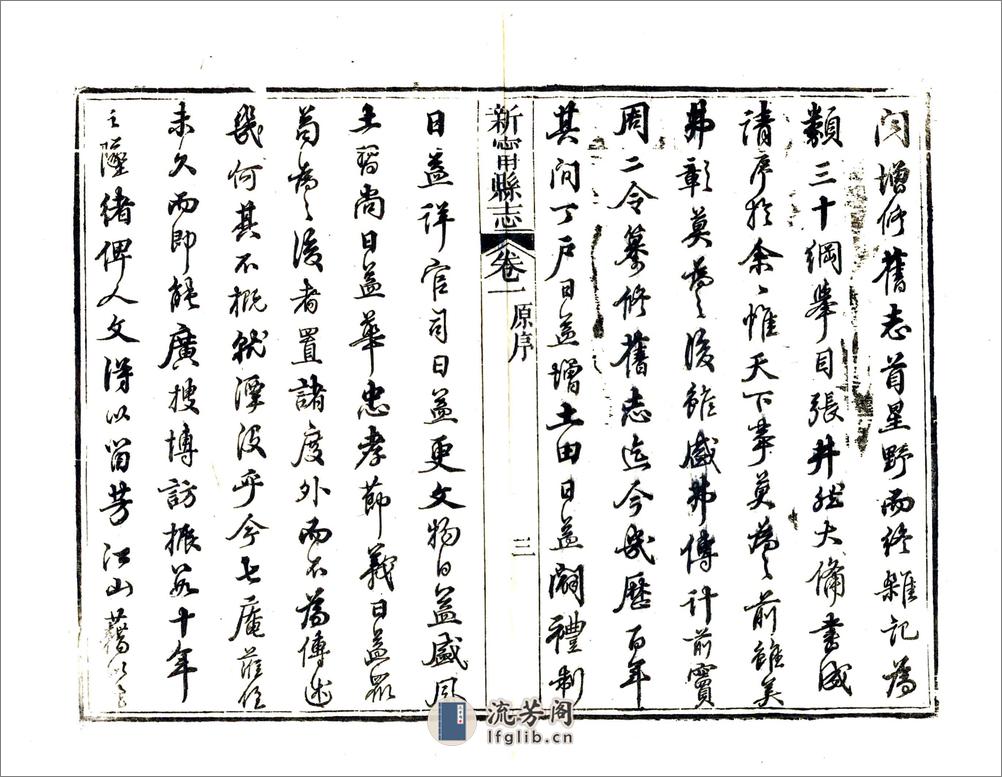 閱增修舊志首星野而終雜記為
類三十綱舉目張井然大備書成
請序於余余惟天下事莫為之前雖美
弗彰莫為之後雖盛弗傳計前竇
周二令纂修舊志迄今幾歷百年
其間丁戶日益增土田日益闢禮制
新甯縣志 卷一 原序 三
日益詳官司日益更文物日益盛風
土習尚日益華忠孝節義日益眾
苟為之後者置諸度外而不為傳述
幾何其不概就湮沒乎今七庵蒞任
未久而即能廣搜博訪振數十年
之墜緒俾人文得以留芳江山藉以
流芳阁
lfglib.cn